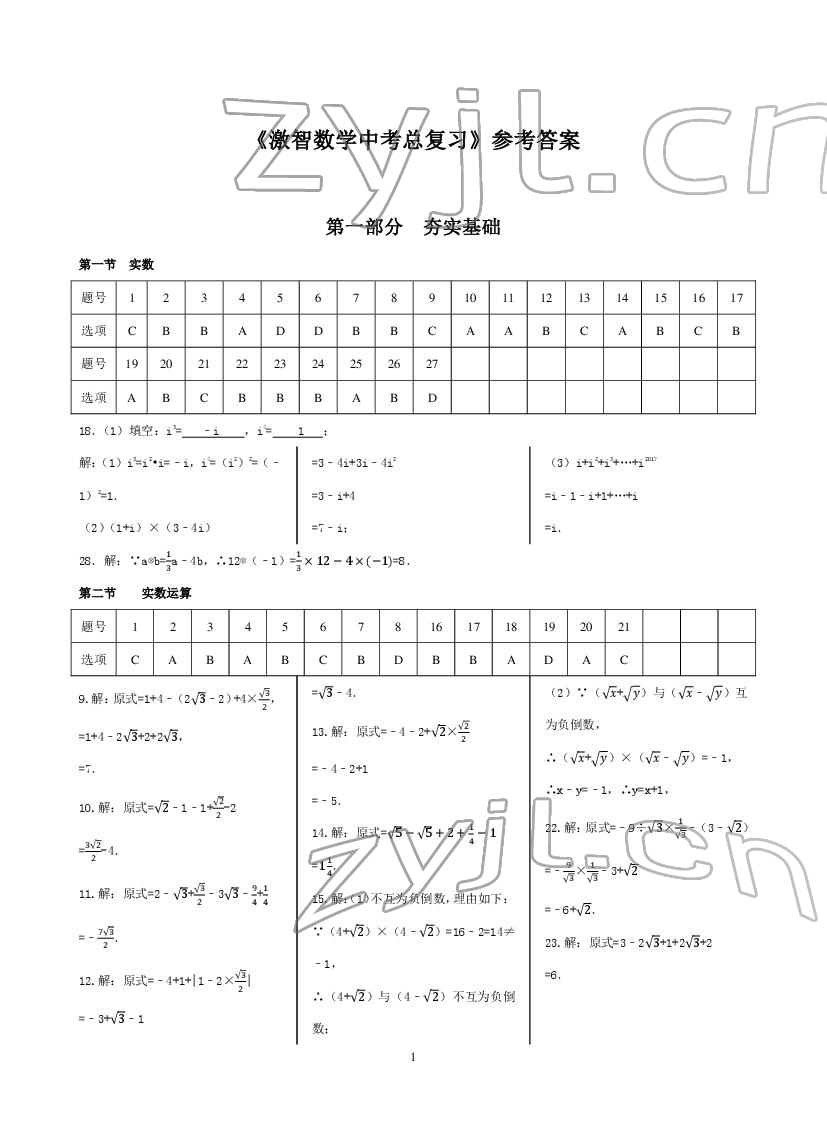 《激智数学中考总复习》参考答案
第一部分 夯实基础
第一节 实数
题号 1 2 3 4 5 6 7 8 9 10 11 12 13 14 15 16 17
选项 C B B A D D B B C A A B C A B C B
题号 19 20 21 22 23 24 25 26 27
选项 A B C B B B A B D
18.(1)填空:i³= ﹣i ,i⁴= 1 ;
解:(1)i³=i²•i=﹣i,i⁴=(i²)²=(﹣
1)²=1.
(2)(1+i)×(3﹣4i)
=3﹣4i+3i﹣4i²
=3﹣i+4
=7﹣i;
(3)i+i²+i³+…+i²⁰¹⁷
=i﹣1﹣i+1+…+i
=i.
28. 解:∵a⊗b=1/3a﹣4b,∴12⊗(﹣1)=1/3×12−4×(−1)=8.
第二节 实数运算
题号 1 2 3 4 5 6 7 8 16 17 18 19 20 21
选项 C A B A B C B D B B A D A C
9.解:原式=1+4﹣(2√3﹣2)+4×√3/2,
=1+4﹣2√3+2+2√3,
=7.
10.解:原式=√2﹣1﹣1+√2/2−2
=3√2/2−4.
11.解:原式=2﹣√3+√3/2﹣3√3﹣9/4+1/4
=﹣7√3/2.
12.解:原式=﹣4+1+|1﹣2×√3/2|
=﹣3+√3﹣1
=√3﹣4.
13.解:原式=﹣4﹣2+√2×√2/2
=﹣4﹣2+1
=﹣5.
14.解:原式=√5−√5+2+1/4−1
=1 1/4.
15.解:(1)不互为负倒数,理由如下:
∵(4+√2)×(4﹣√2)=16﹣2=14≠
﹣1,
∴(4+√2)与(4﹣√2)不互为负倒
数;
(2)∵(√x+√y)与(√x﹣√y)互
为负倒数,
∴(√x+√y)×(√x﹣√y)=﹣1,
∴x﹣y=﹣1,∴y=x+1,
22.解:原式=﹣9÷√3×1/√3﹣(3﹣√2)
=﹣9/√3×1/√3﹣3+√2
=﹣6+√2.
23.解:原式=3﹣2√3+1+2√3+2
=6.
1
zyjl.cn
zyjl.cn